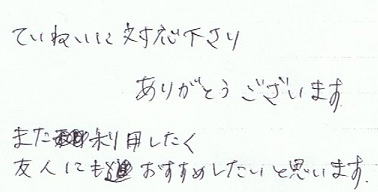 ていねいに対応下さり
ありがとうございます
また利用したく
友人にもおすすめしたいと思います.